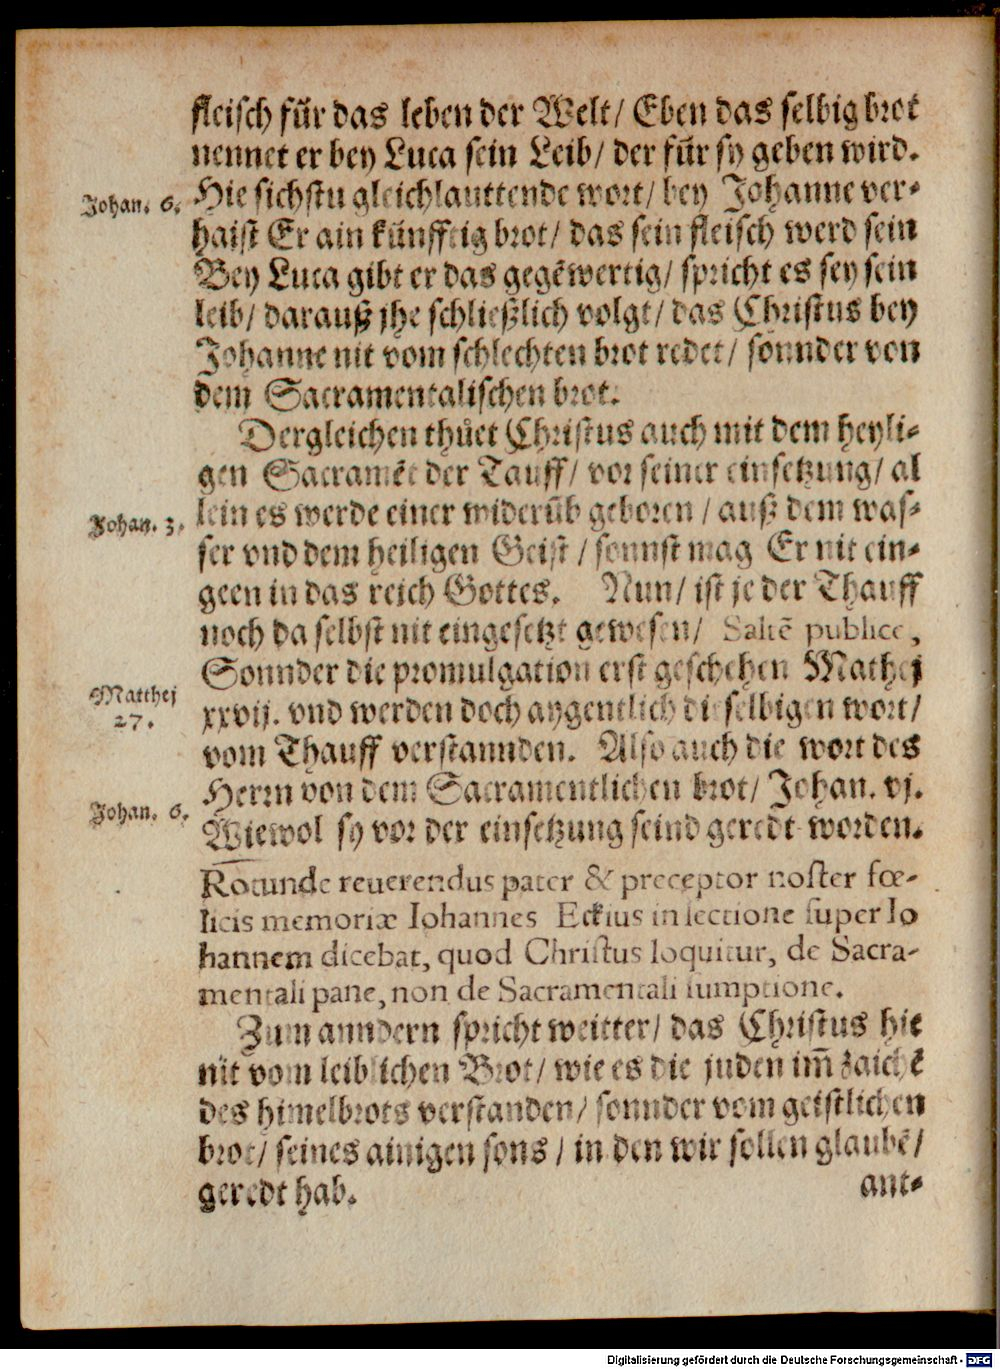 fleisch für das leben der Welt/ Eben das selbig brot
nennet er bey Luca sein Leib/ der für sy geben wird.
Johan. 6.
Hie sichstu gleichlauttende wort/ bey Johanne ver-
haist Er ain künfftig brot/ das sein fleisch werd sein
Bey Luca gibt er das gegẽwertig/ spricht es sey sein
leib/ darauß jhe schließlich volgt/ das Christus bey
Johanne nit vom schlechten brot redet/ sonnder von
dem Sacramentalischen brot.
Dergleichen thuͤet Christus auch mit dem heyli-
gen Sacramẽt der Tauff/ vor seiner einsetzung/ al
Johan. 3.
lein es werde einer widerũb geboren/ auß dem was-
ser vnd dem heiligen Geist/ sonnst mag Er nit ein-
geen in das reich Gottes. Nun/ ist je der Thauff
noch da selbst nit eingesetzt gewesen/ Saltẽ publice,
Sonnder die promulgation erst geschehen Mathej
Matthej
27.
xxvij. vnd werden doch aygentlich die selbigen wort/
vom Thauff verstannden. Also auch die wort des
Johan. 6.
Herrn von dem Sacramentlichen brot/ Johan. vj.
Wiewol sy vor der einsetzung seind geredt worden.
Rotunde reuerendus pater & preceptor noster fœ-
licis memoriæ Iohannes Eckius in lectione super Io
hannem dicebat, quod Christus loquitur, de Sacra-
mentali pane, non de Sacramentali sumptione.
Zum anndern spricht weitter/ das Christus hie
nit vom leiblichen Brot/ wie es die juden im̃ zaichẽ
des himelbrots verstanden/ sonnder vom geistlichen
brot/ seines ainigen sons/ in den wir sollen glaubẽ/
geredt hab.
ant-
Digitalisierung gefördert durch die Deutsche Forschungsgemeinschaft - DFG